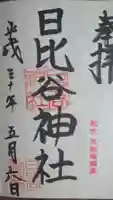 奉拝
日比谷神社
平成三十年五月六日